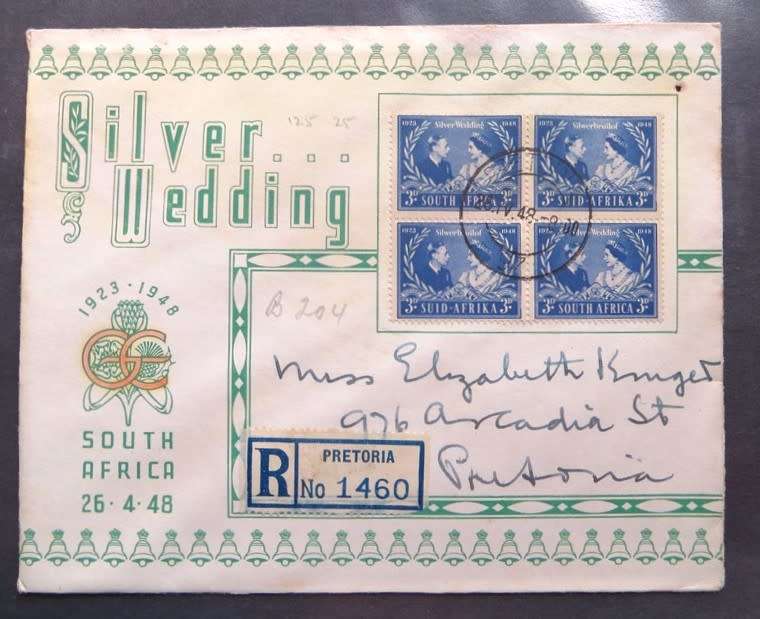 Silver...
Wedding
125 25
1923 Silver Wedding 1948
3D SOUTH AFRICA 3D
1923 Silwerbruilof 1948
3D SUID-AFRIKA 3D
1923 Silwerbruilof 1948
3D SUID-AFRIKA 3D
1923 Silver Wedding 1948
3D SOUTH AFRICA 3D
IV.48.-8.00
1923·1948
B 204
SOUTH
AFRICA
26·4·48
Miss Elizabeth Kruger
976 Arcadia St
Pretoria
R
PRETORIA
No 1460